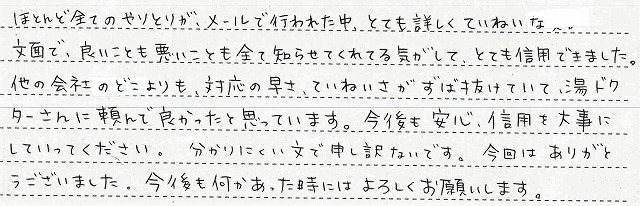 ほとんど全てのやりとりが、メールで行われた中、とても詳しくていねいな
文面で、良いことも悪いことも全て知らせてくれてる気がして、とても信用できました。
他の会社のどこよりも、対応の早さ、ていねいさがずば抜けていて、湯ドク
ターさんに頼んで良かったと思っています。今後も安心、信用を大事に
していってください。 分かりにくい文で申し訳ないです。 今回はありがと
うございました。今後も何かあった時にはよろしくお願いします。